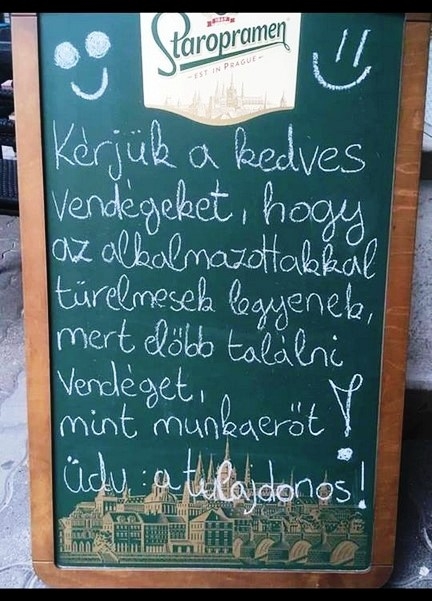 Staropramen
EST IN PRAGUE
Kérjük a kedves
vendégeket, hogy
az alkalmazottakkal
türelmesek legyenek,
mert előbb találni
vendéget,
mint munkaerőt!
Üdv: a tulajdonos!